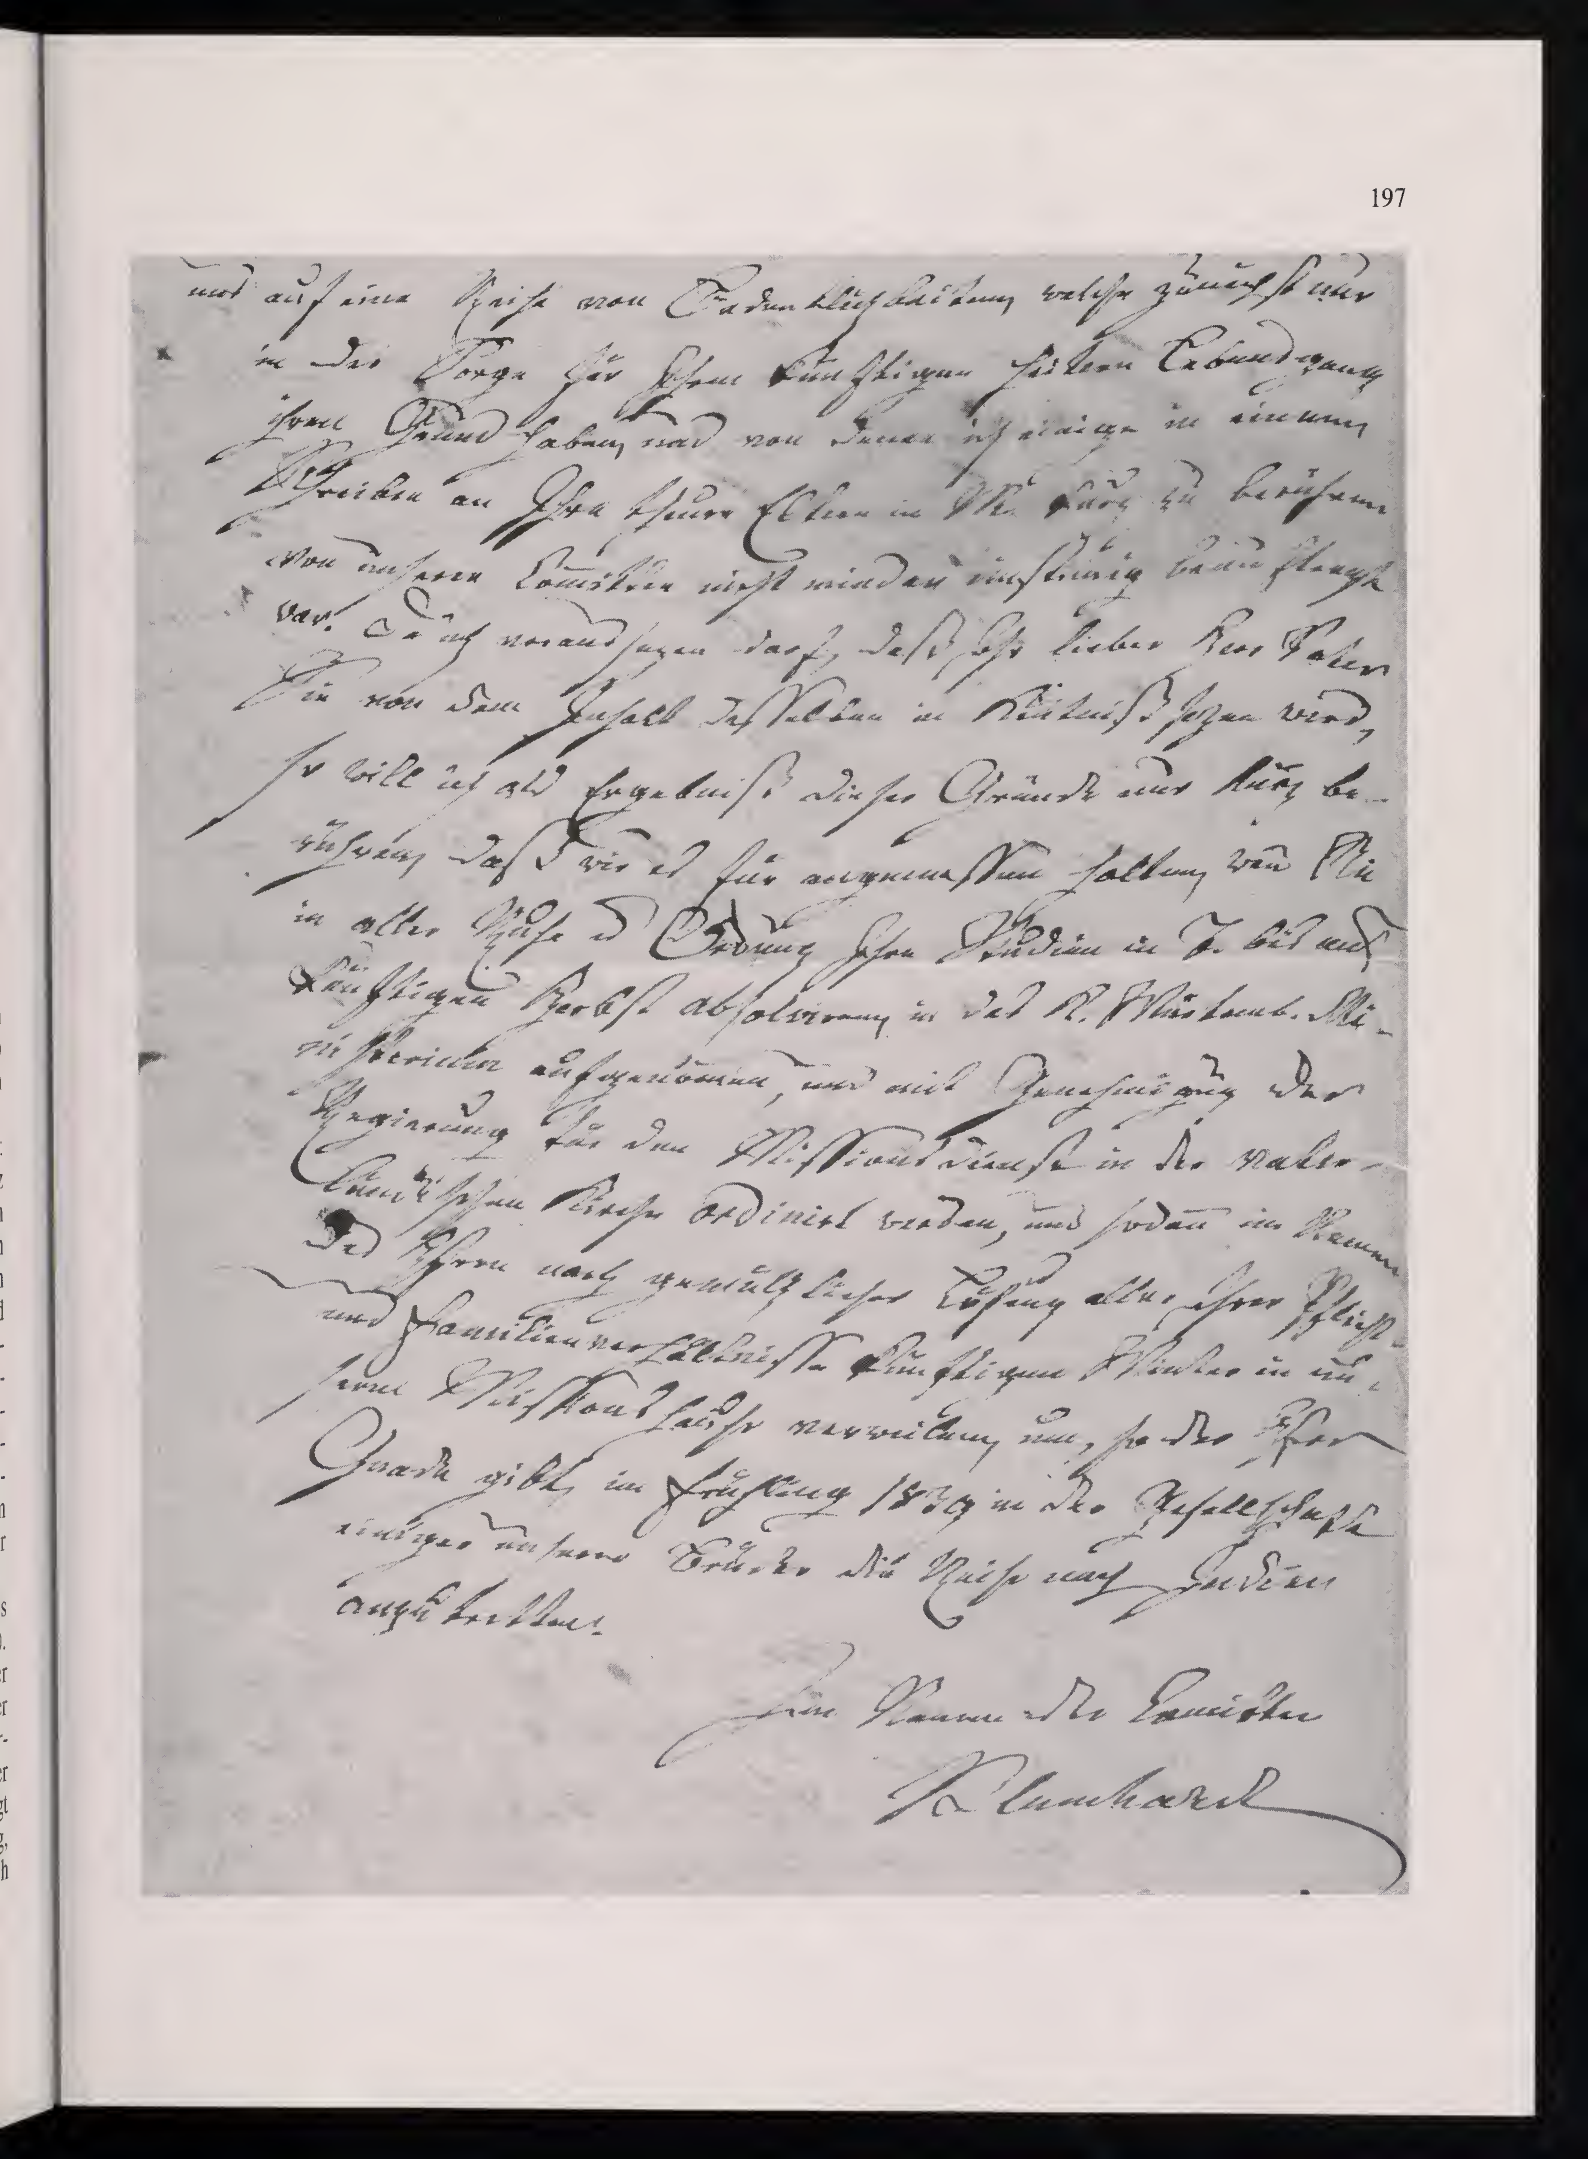 197
uns auf eine Reihe von Bedenklichkeiten, welche zunächst nur
in der Sorge für Ihren künftigen heitern Lebensgang
ihren Grund haben, und von denen ich einige in einem
Schreiben an Ihre theure Eltern in M. kurz zu berühren
von unserer Comittee nicht minder einstimig beauftragt
war. Da ich voraussezen darf, daß Ihr lieber Herr Vater
Sie von dem Inhalt desselben in Kentniß sezen wird,
so will ich als Ergebniß dieser Gründe nur kurz be-
rühren, daß wir es für angemessen halten, wen Sie
in aller Ruhe u Ordnung Ihre Studien in T. bis auf
künftigen Herbst absolviren, in das K. Würtemb. Mi-
nisterium aufgenomen, und mit Genehmigung der
Regierung für den Missionsdienst in der vater-
ländischen Kirche ordinirt werden, und sodan im Namen
des HErrn nach gemüthlicher Lösung aller Ihrer Pflicht-
und Familienverhältnisse künftigen Winter in un-
serm Missionshause verweilen, um, so der HErr
Gnade gibt, im Frühling 1839 in der Gesellschaft
einiger unserer Brüder die Reise nach Indien
anzutretten.
Im Namen der Comittee
Blumhardt